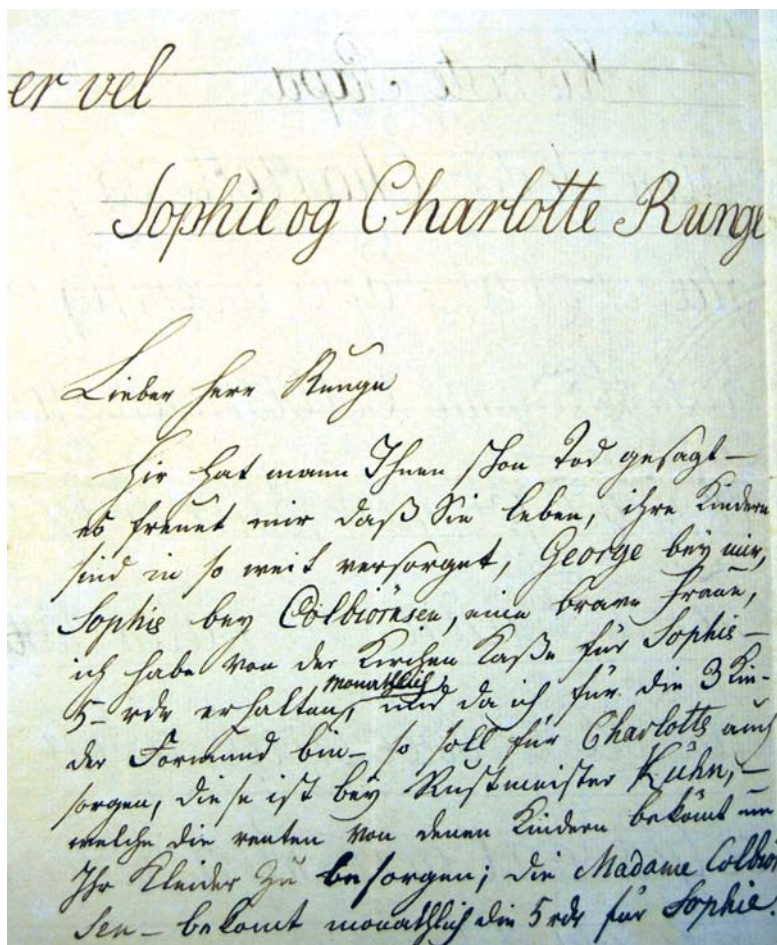 er vel
Sophie og Charlotte Runge
Lieber Herr Runge
Hir hat mann Ihnen schon Tod gesagt –
es freuet mir daß Sie leben, ihre Kinder
sind in so weit versorget, George bey mir,
Sophie bey Colbiörnsen, eine brave Fraue,
ich habe von der Kirchen Kaße für Sophie –
monathlich
5 – rdr erhalten, und da ich für die 3 Kin-
der Formund bin – so soll für Charlotte auch
sorgen, diese ist bey Rustmeister Kühn, –
welche die renten von denen Kindern bekömt um
Ihr Kleider zu besorgen; die Madame Colbiör
sen – bekomt monathlich die 5 rdr für Sophie.